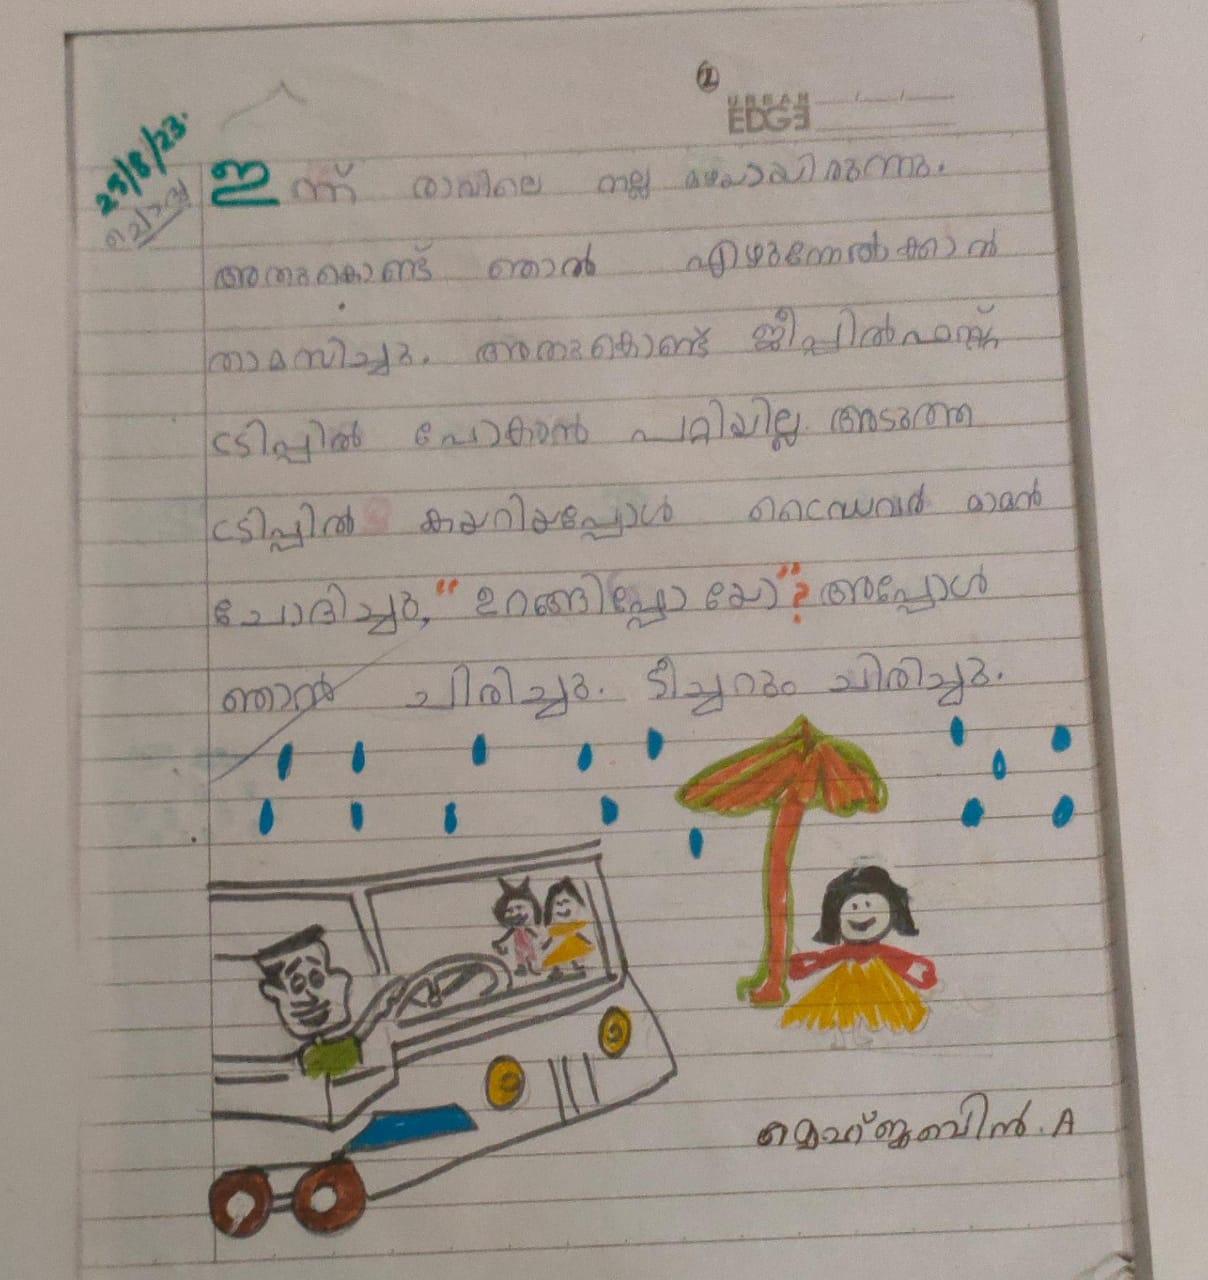 ②
URBAN EDGE
23/8/23.
ഇന്ന് രാവിലെ നല്ല മഴയായിരുന്നു.
അതുകൊണ്ട് ഞാൻ എഴുന്നേൽക്കാൻ
താമസിച്ചു. അതുകൊണ്ട് ജീപ്പിൽ ഫസ്റ്റ്
ട്രിപ്പിൽ പോകാൻ പറ്റിയില്ല. അടുത്ത
ട്രിപ്പിൽ കയറിയപ്പോൾ ഡ്രൈവർ മാമൻ
ചോദിച്ചു, "ഉറങ്ങിപ്പോയോ"? അപ്പോൾ
ഞാൻ ചിരിച്ചു. ടീച്ചറും ചിരിച്ചു.
മെഹ്ജബിൻ. A